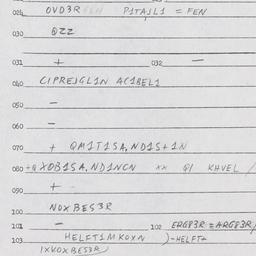 024 OVD3R P1TAJL1 = FEN
030 QZZ
031 + 032 —
040 CIPREJGL1N AC1BEL1
050 —
060 —
070 + QM1T1SA, ND1S+1N
080 +QXOB1SA, ND1NCN ×× Q1 KHVEL /
090 +
100 NOXBES3R
101 — 102 ERGP3R = ARGP3R /
103 HELFT1MKOXN )-HELFT+
1XKOXBES3R)